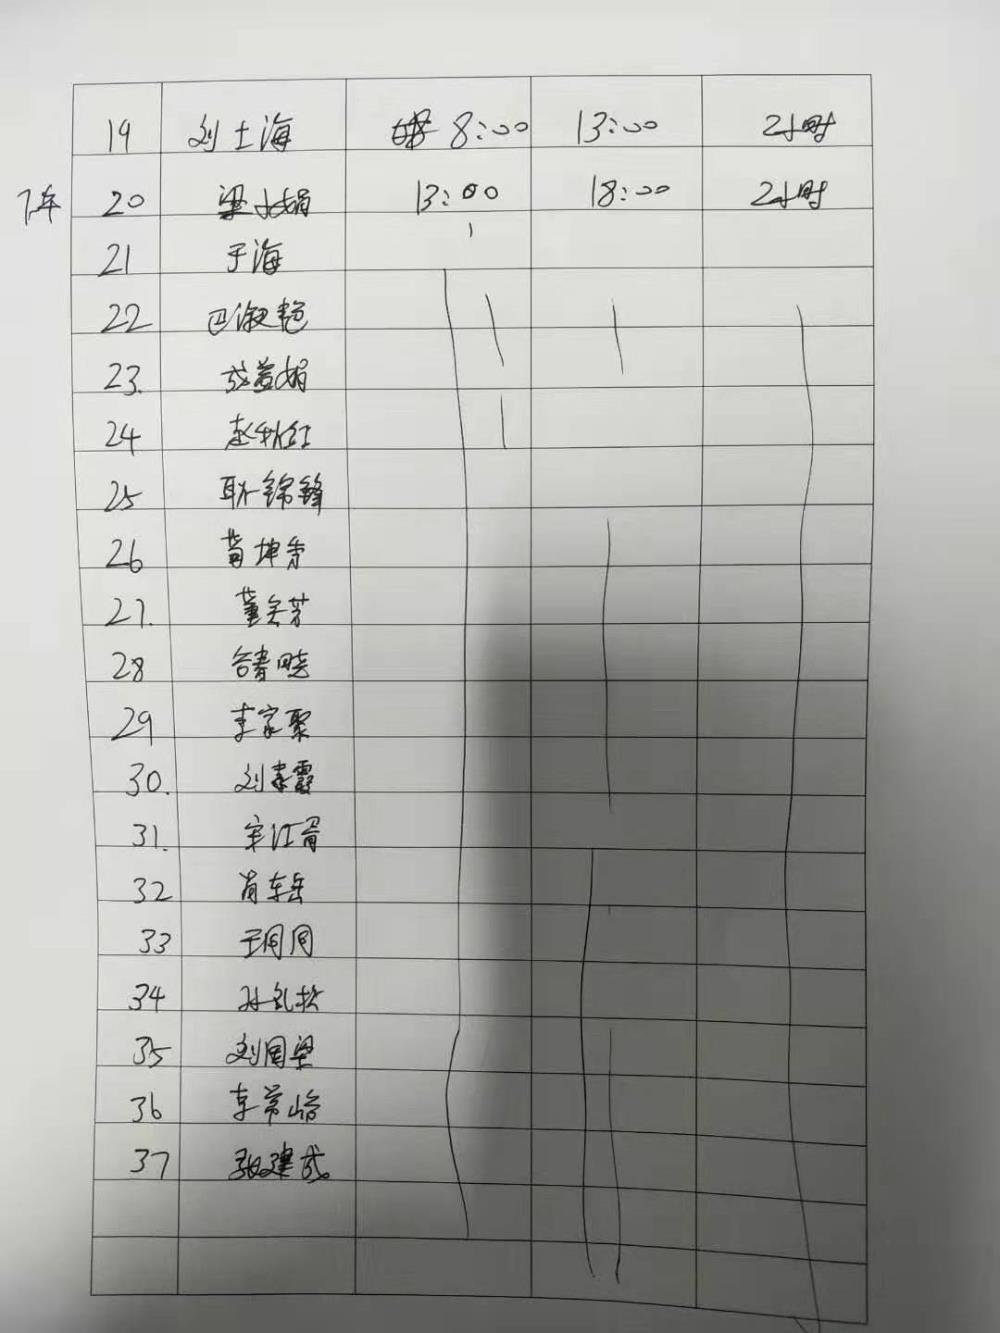 19 刘士海 8:00 13:00 2小时
下午 20 梁小娟 13:00 18:00 2小时
21 于海
22 巴淑艳
23. 成益娟
24 赵秋红
25 耿锦锋
26 苗坤芳
27. 董美芳
28
29 李家聚
30. 刘素霞
31. 宋江胥
32 肖东岳
33 于同同
34 孙礼松
35 刘国梁
36 李常峪
37 张建成